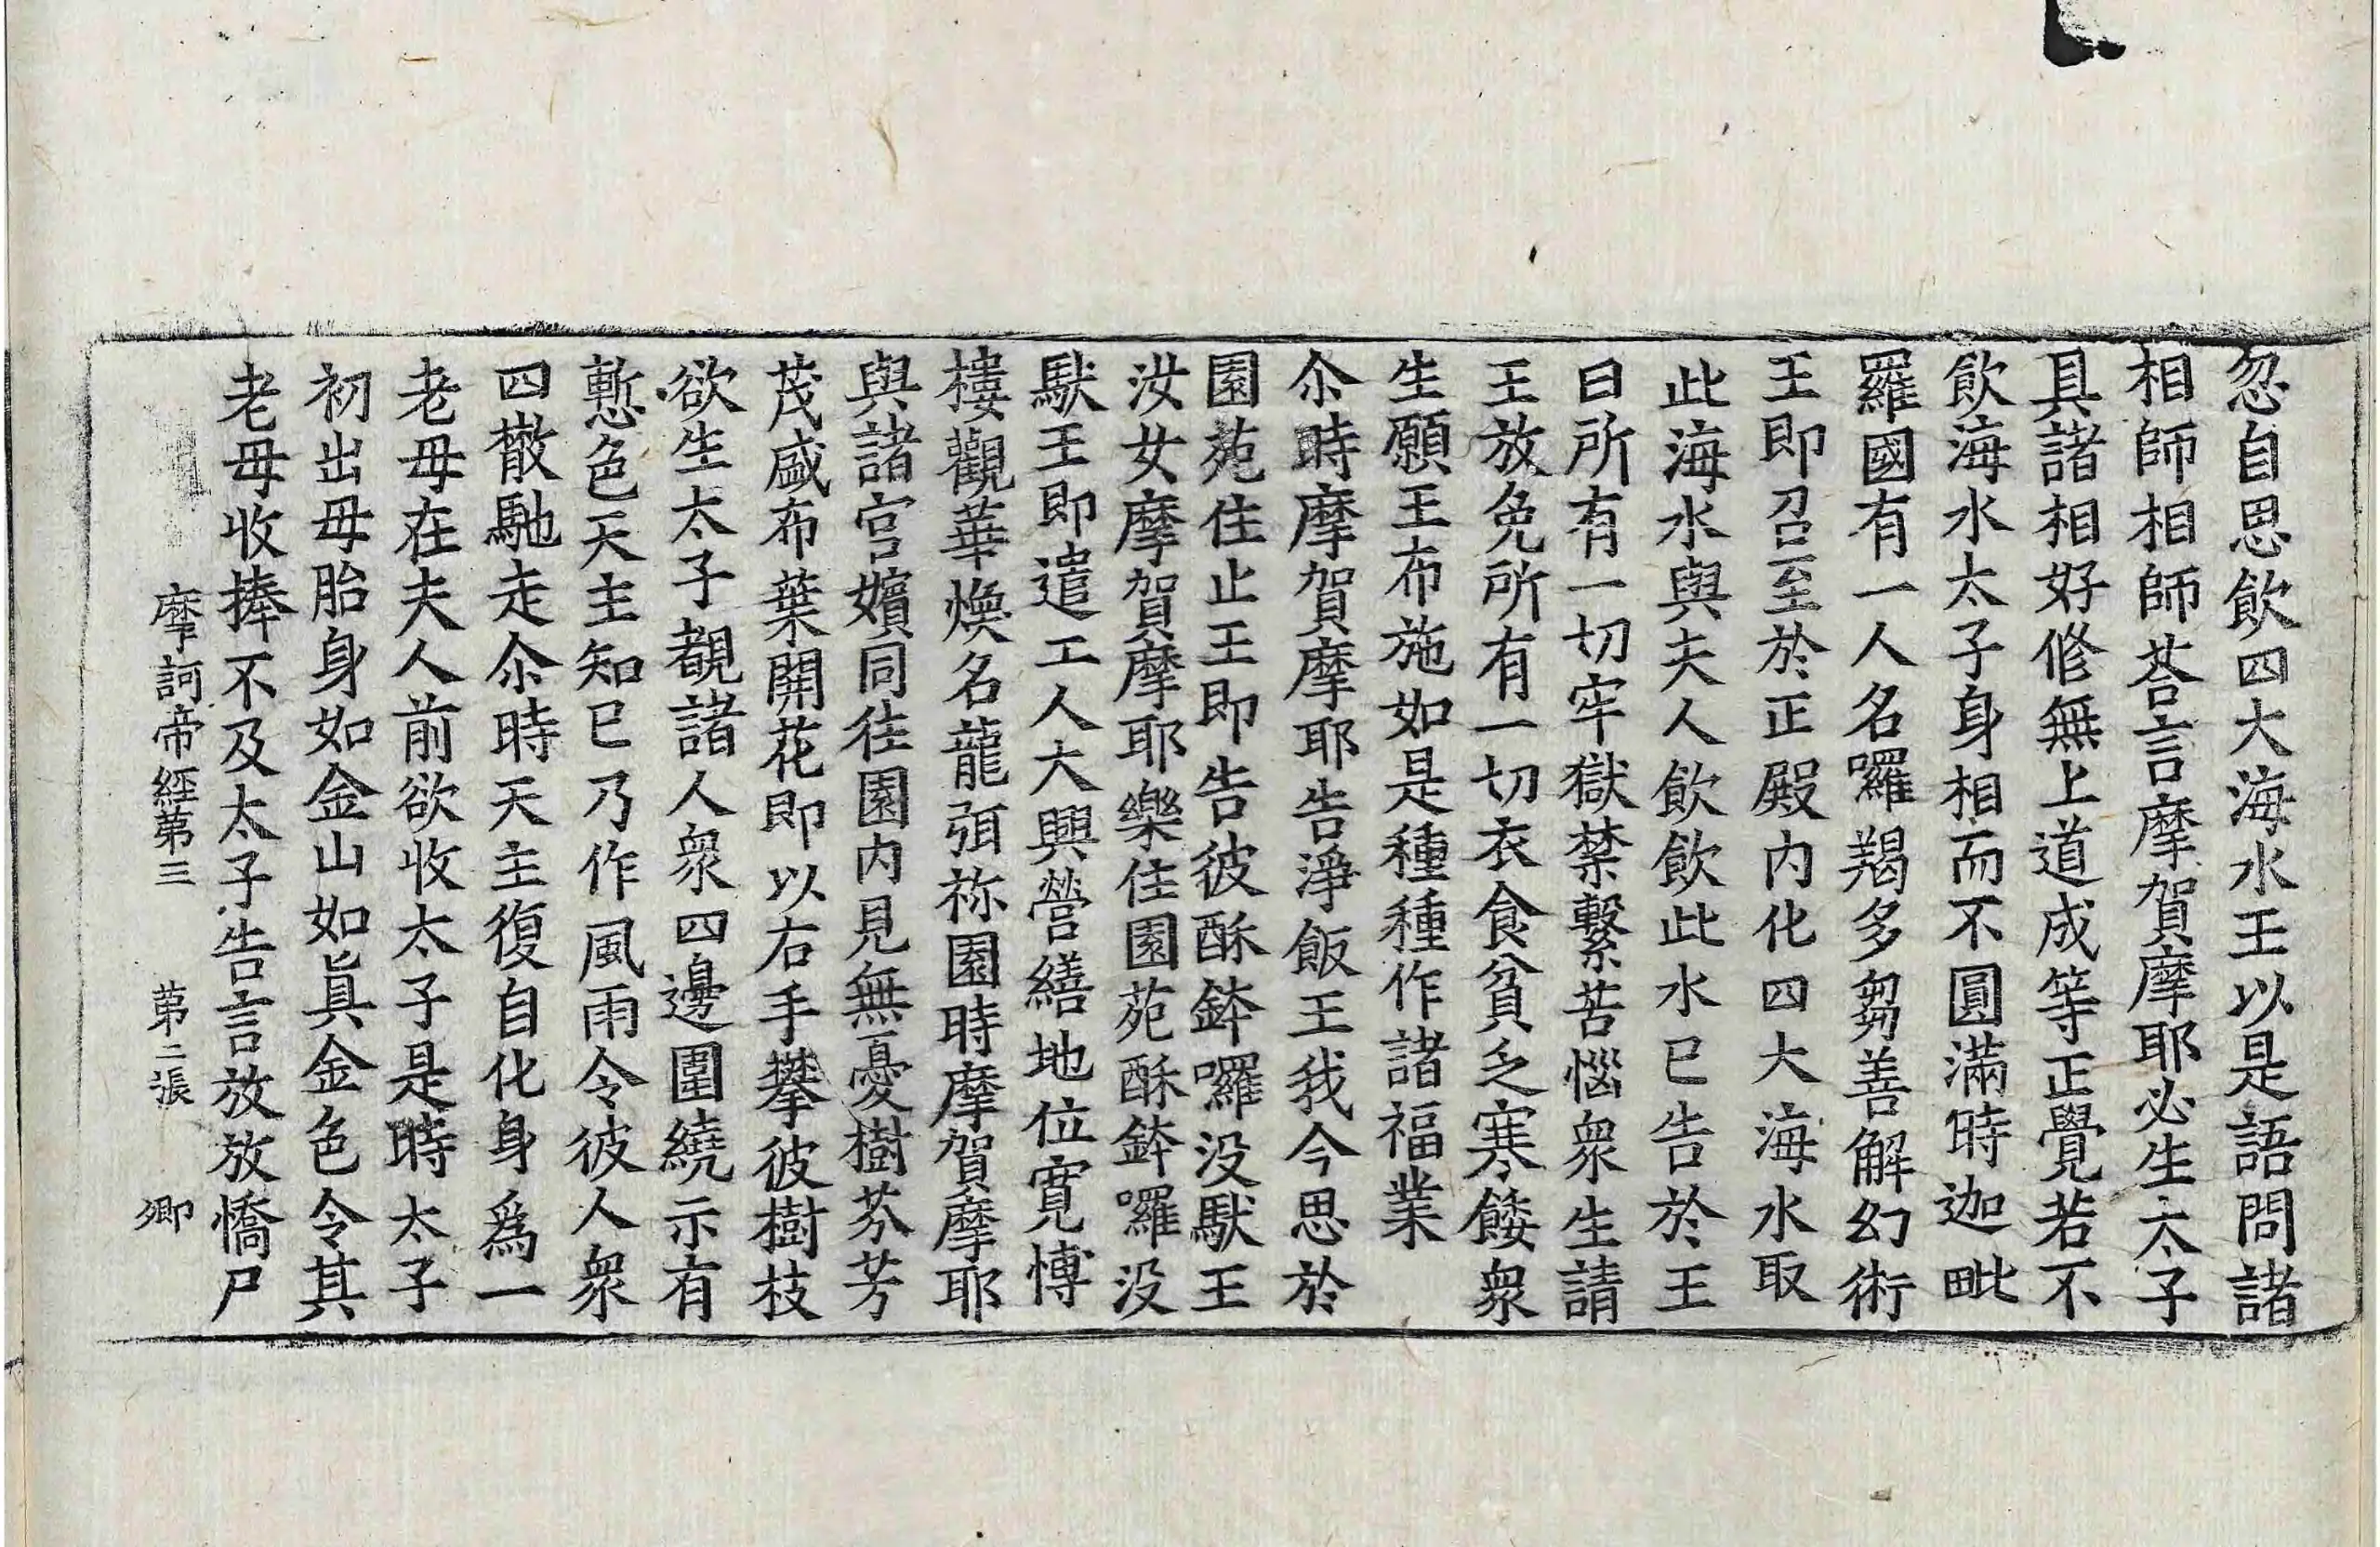 忽自思飲四大海水王以是語問諸
相師相師荅言摩賀摩耶必生太子
具諸相好修無上道成等正覺若不
飲海水太子身相而不圓滿時迦毗
羅國有一人名囉羯多芻善解幻術
王即召至於正殿内化四大海水取
此海水與夫人飲飲此水已告於王
曰所有一切牢獄禁繫苦惱衆生請
王放免所有一切衣食貧乏寒餧衆
生願王布施如是種種作諸福業
尒時摩賀摩耶告淨飯王我今思於
園苑住止王即告彼酥鉢囉没馱王
汝女摩賀摩耶樂住園苑酥鉢囉没
馱王即遣工人大興營繕地位寛博
樓觀華煥名龍弭祢園時摩賀摩耶
與諸宫嬪同往園内見無憂樹芬芳
茂盛布葉開花即以右手攀彼樹枝
欲生太子覩諸人衆四邊圍繞示有
慙色天主知已乃作風雨令彼人衆
四散馳走尒時天主復自化身爲一
老母在夫人前欲收太子是時太子
初出母胎身如金山如眞金色令其
老母收捧不及太子告言放放憍尸
摩訶帝經第三 第二張 卿